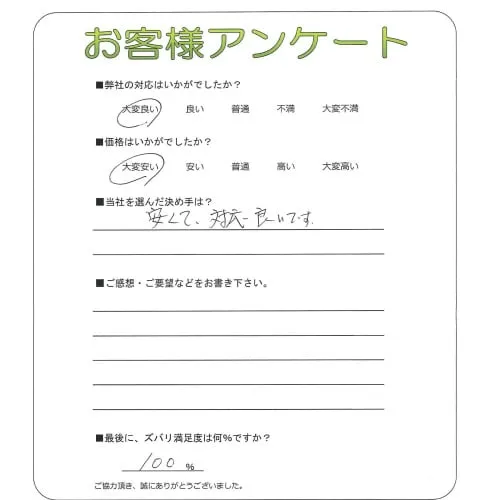 お客様アンケート
■弊社の対応はいかがでしたか？
大変良い 良い 普通 不満 大変不満
■価格はいかがでしたか？
大変安い 安い 普通 高い 大変高い
■当社を選んだ決め手は？
安くて、対応一良いです。
■ご感想・ご要望などをお書き下さい。
■最後に、ズバリ満足度は何％ですか？
100 ％
ご協力頂き、誠にありがとうございました。